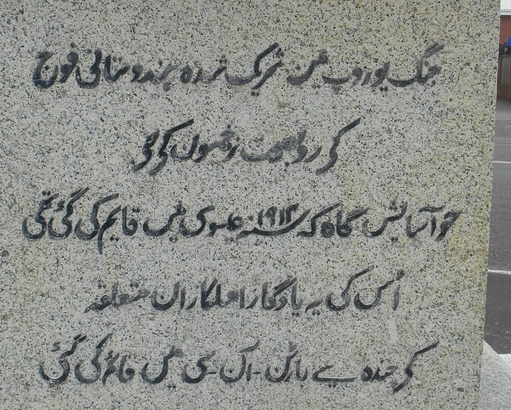 جنگ یوروپ میں شریک شدہ ہندوستانی فوج
کی روبصحت
جو آسائش گاہ کہ سنہ ۱۹۱۴ عیسوی میں قایم کی گئی تھی
اُس کی یہ یادگار اہلکاران متعلقہ
کے چندہ سے بارٹن-آن-سی میں قائم کی گئی